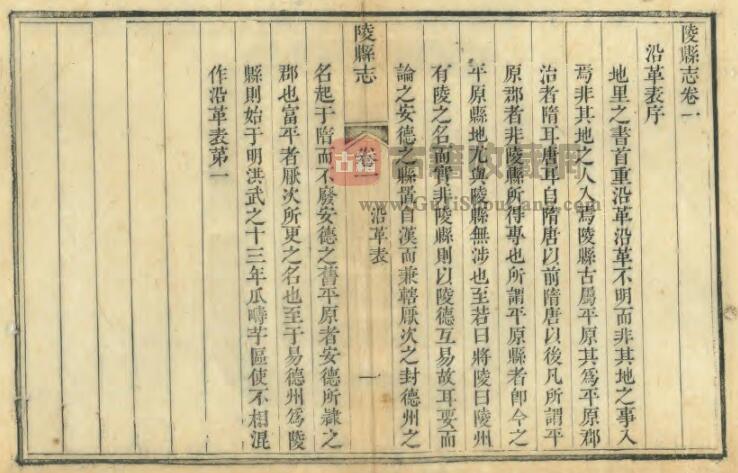 陵縣志卷一
沿革表序
地里之書首重沿革沿革不明而非其地之事入
焉非其地之人入焉陵縣古屬平原其為平原郡
治者隋耳唐耳自隋唐以前隋唐以後凡所謂平
原郡者非陵縣所得專也所謂平原縣者卽今之
平原縣地尤與陵縣無涉也至若曰將陵曰陵州
有陵之名而實非陵縣則以陵德互易故耳要而
論之安德之縣置自漢而兼轄厭次之封德州之
陵縣志
卷一
沿革表
一
名起于隋而不廢安德之舊平原者安德所隸之
郡也富平者厭次所更之名也至于易德州為陵
縣則始于明洪武之十三年瓜疇芋區使不相混
作沿革表第一
古籍收藏网
www.GuJiShouCang.com